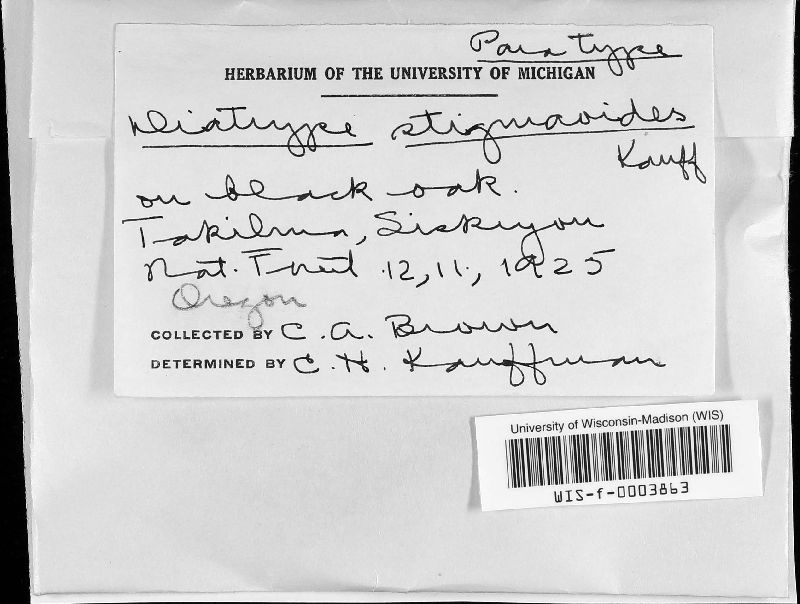 Paratype
HERBARIUM OF THE UNIVERSITY OF MICHIGAN
Diatrype stigmaoides
Kauff
on black oak.
Takilma, Siskiyou
Nat. Forest 12, 11, 1925
Oregon
COLLECTED BY C. A. Brown
DETERMINED BY C. H. Kauffman
University of Wisconsin-Madison (WIS)
WIS-f-0003863